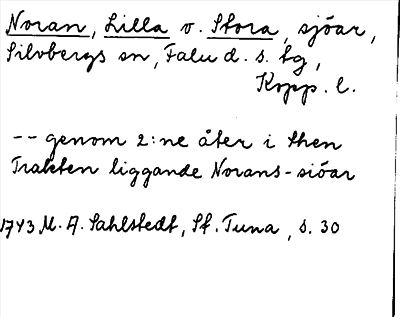 Noran, Lilla o. Stora, sjöar,
Silvbergs sn, Falu d. s. tg,
Kopp. l.
-- genom 2:ne åter i then
Trakten liggande Norans-siöar
1743 M. A. Sahlstedt, St. Tuna, s. 30